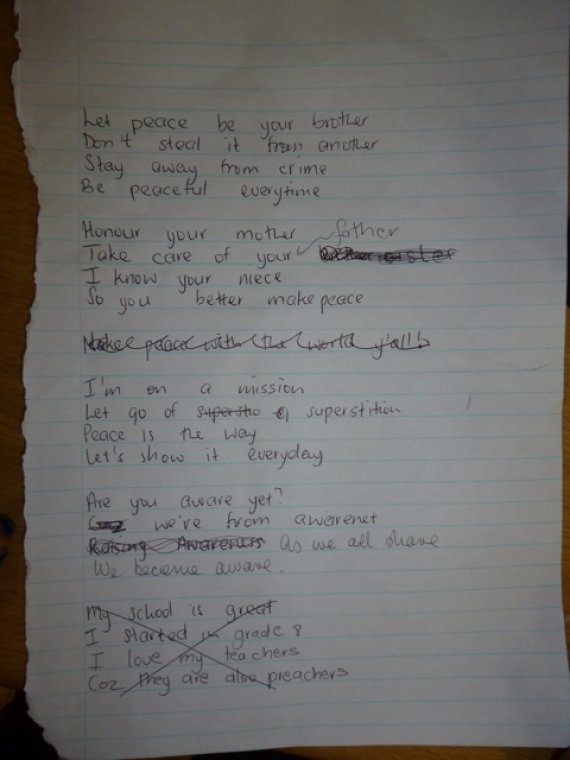 Let peace be your brother
Don't steal it from another
Stay away from crime
Be peaceful everytime
Honour your mother
father
Take care of your sister
I know your niece
So you better make peace
Make peace with the world y'all
I'm on a mission
Let go of supersti superstition
Peace is the way
Let's show it everyday
Are you aware yet?
Coz we're from awarenet
Raising Awareness as we all share
We become aware.
My school is great
I started in grade 8
I love my teachers
Coz they are also preachers